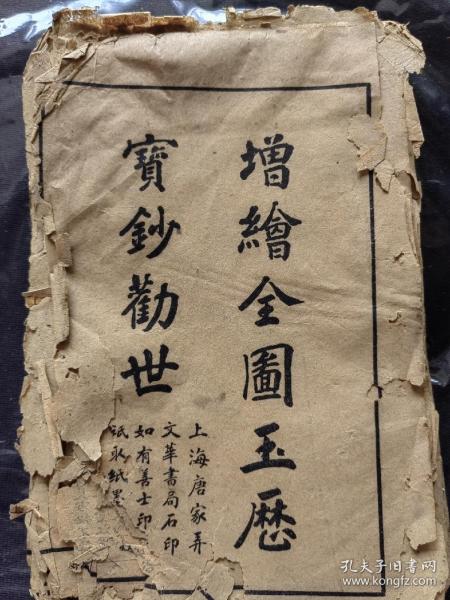 增繪全圖玉歷
寶鈔勸世
上海唐家弄
文華書局石印
如有善士印
祇取紙墨
孔夫子旧书网
www.kongfz.com